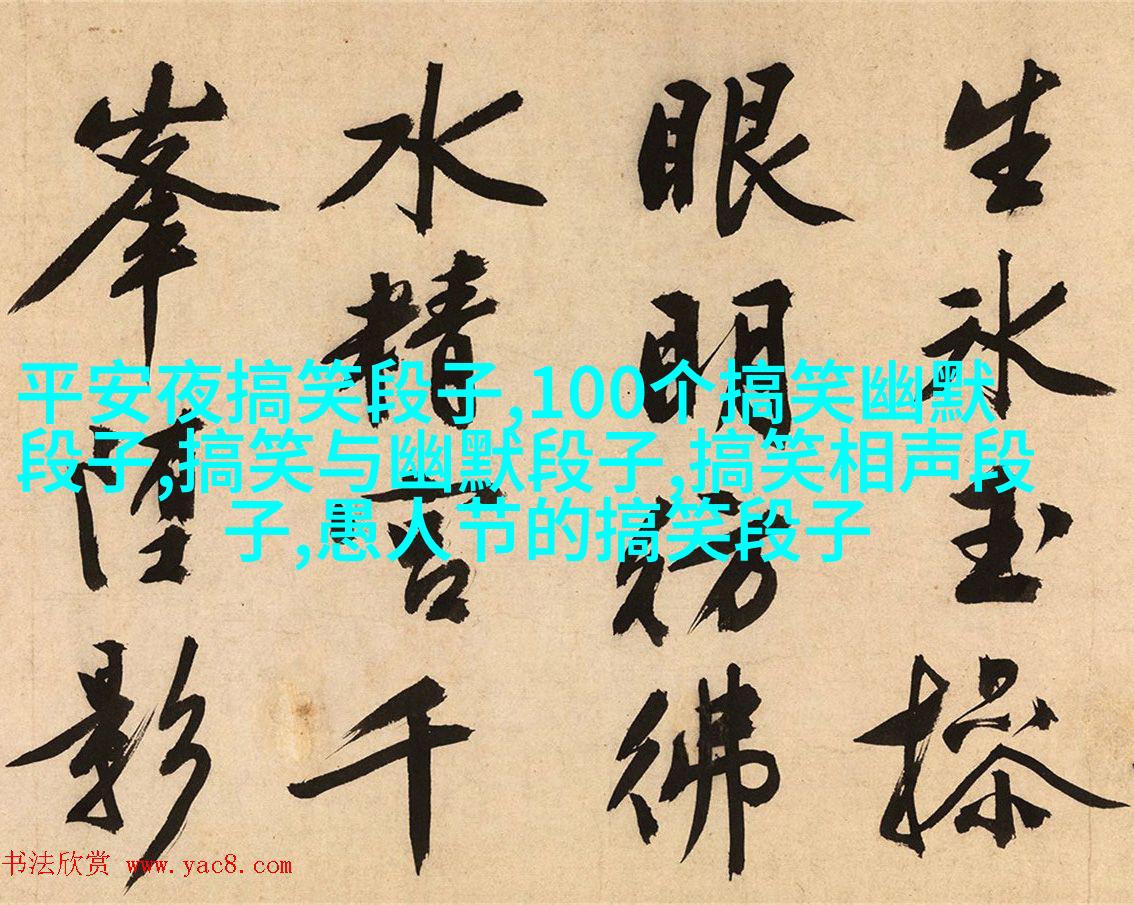 生氷玉操
眼明彷彿
水精宮千
峯影
平安夜搞笑段子,100个搞笑幽默
段子,搞笑与幽默段子,搞笑相声段
子,愚人节的搞笑段子
书法欣赏 www.yac8.com